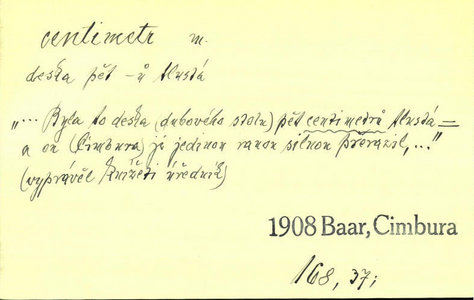 centimetr m.
deska pět -ů tlustá
„... Byla to deska (dubového stolu) pět centimetrů tlustá =
a on (Cimbura) ji jedinou ranou silnou přerazil,..."
(vyprávěl knížecí úředník)
1908 Baar, Cimbura
168, 37;